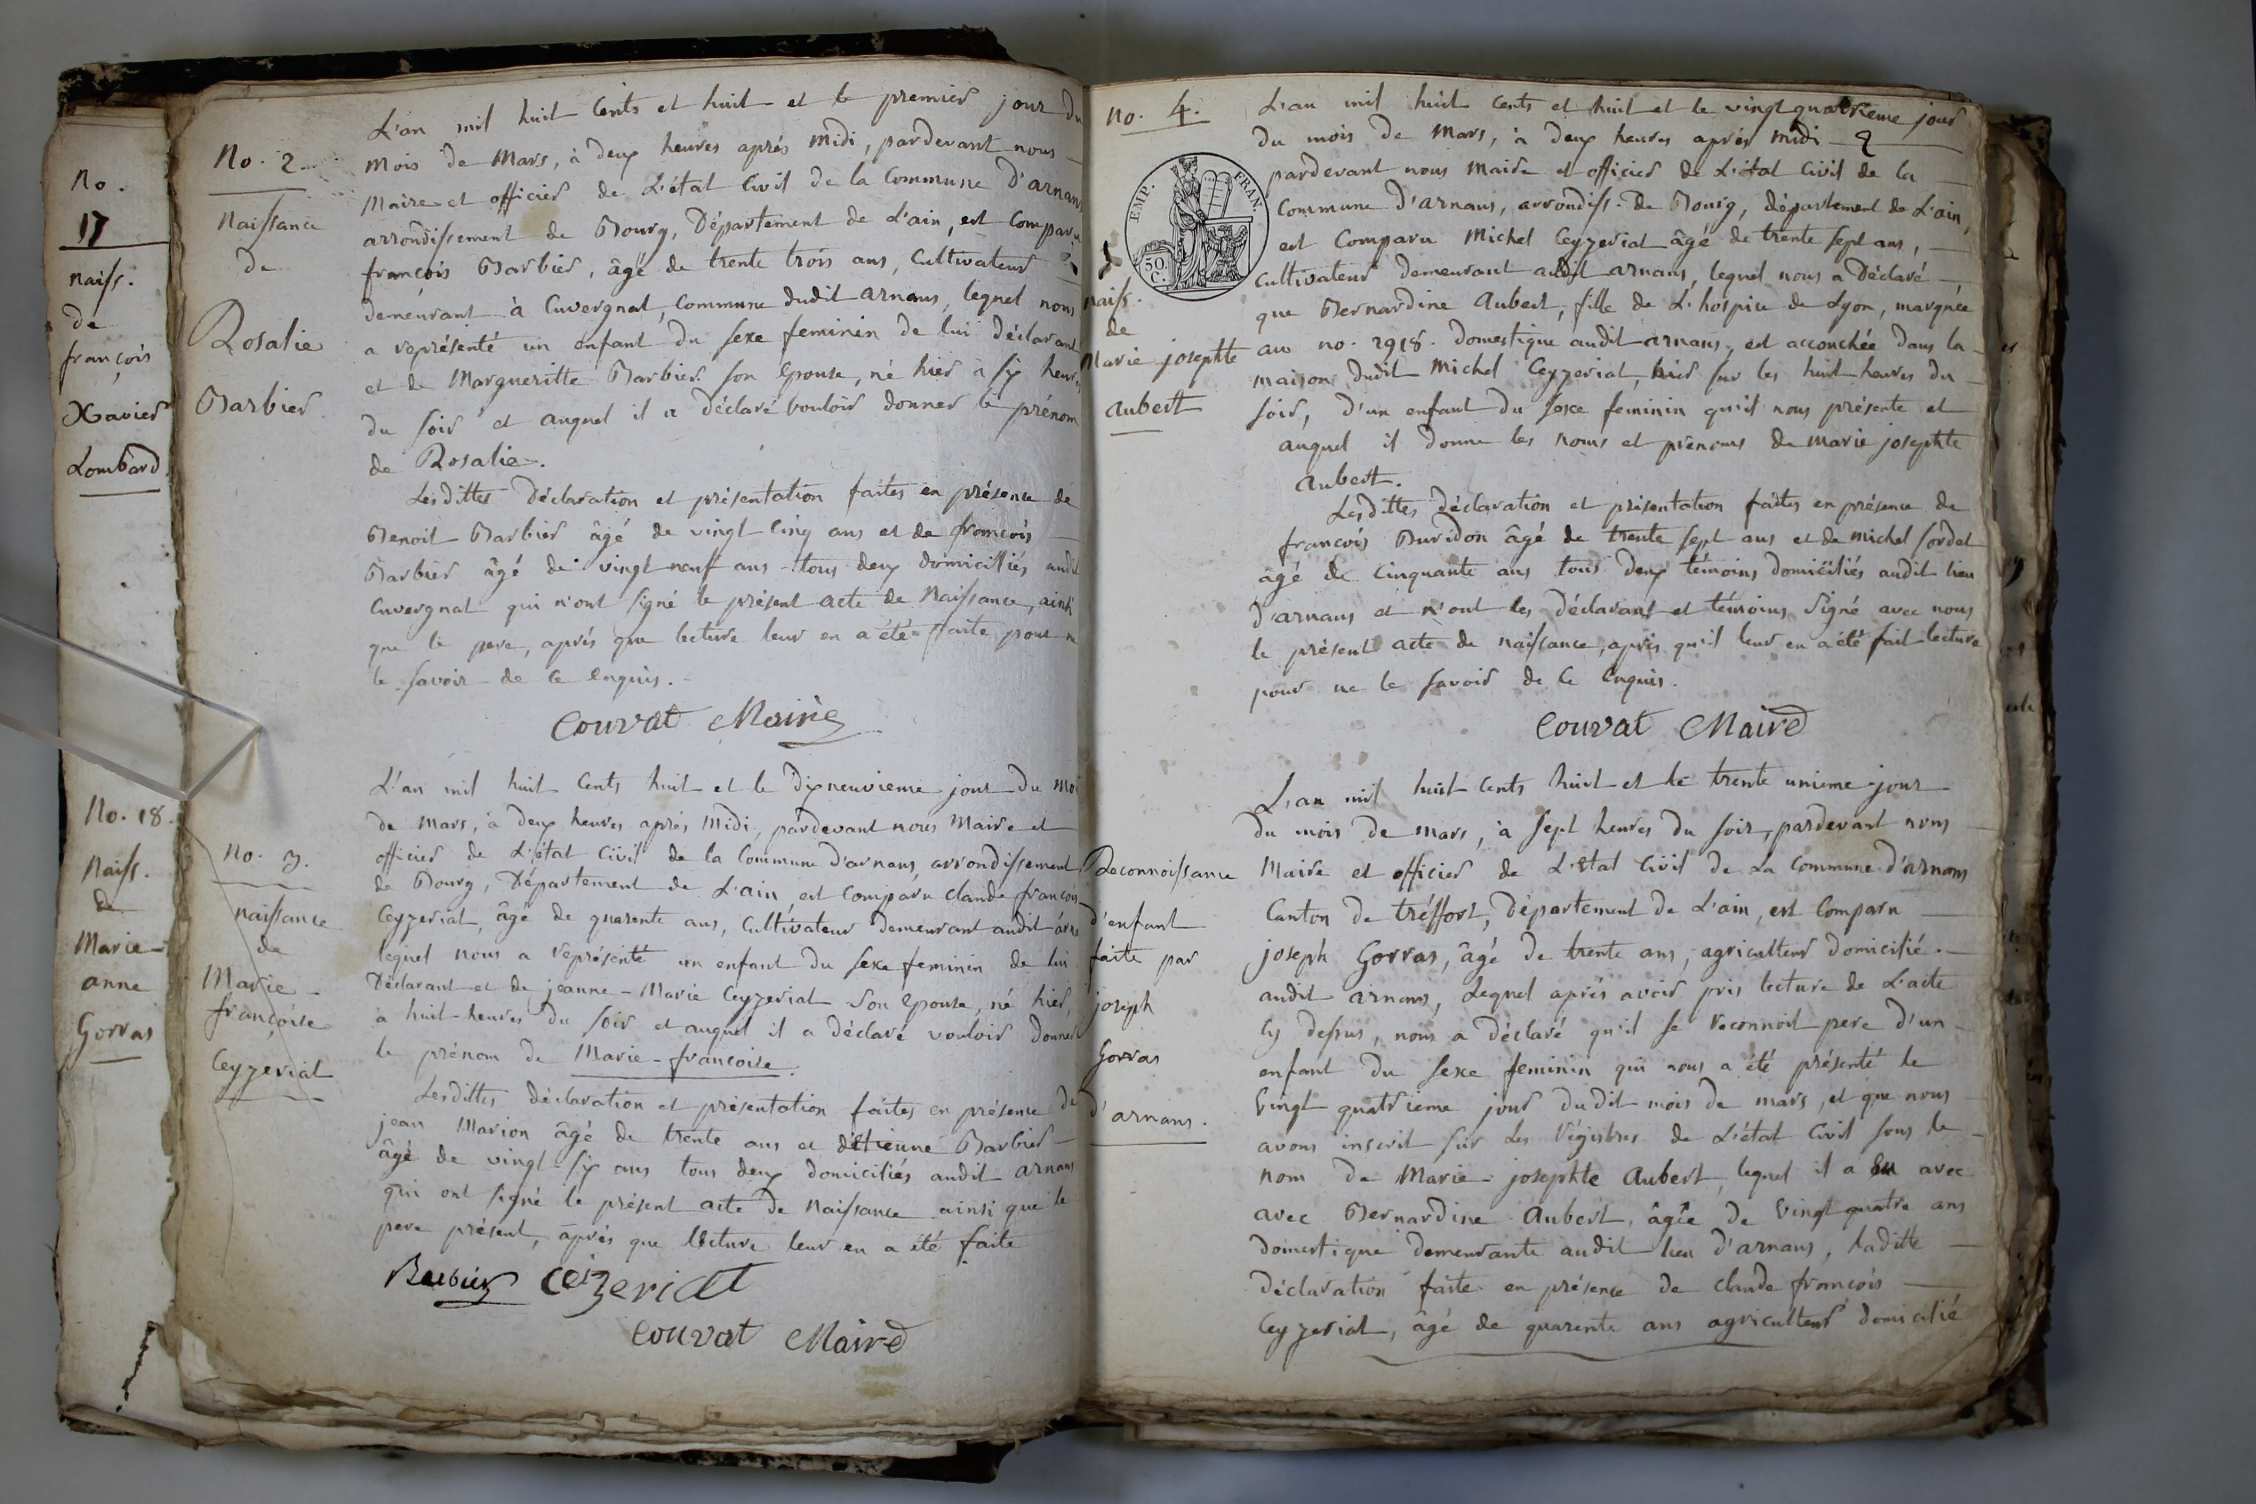 No.
17
naiss.
de
françois
Xavier
Lombard
No. 18.
Naiss.
de
Marie-
anne
Gorras
No. 2
Naissance
de
Rosalie
Barbier
L'an mil huit Cents et huit et le premier jour du
mois de Mars, à deux heures après midi, pardevant nous
Maire et officier de L'état Civil de la Commune D'arnans
arrondissement de Bourg, Département de L'ain, est Comparu
françois Barbier, âgé de trente trois ans, Cultivateur
demeurant à Cuvergnat, Commune dudit arnans, lequel nous
a représenté un enfant du sexe feminin de lui déclarant
et de Margueritte Barbier son Epouse, né hier à six heures
du soir et auquel il a déclaré vouloir donner le prénom
de Rosalie.
Lesdittes déclaration et présentation faites en présence de
Benoit Barbier âgé de vingt Cinq ans et de françois
Barbier âgé de vingt neuf ans tous deux domiciliés audit
Cuvergnat qui n'ont signé le présent acte de Naissance, ainsi
que le pere, après que lecture leur en a été faite, pour ne
le savoir de Ce enquis.
Couvat Maire
No. 3.
naissance
de
Marie-
françoise
Ceyzeriat
L'an mil huit Cents huit et le dix neuvieme jour du moi
de Mars, à deux heures après Midi, pardevant nous Maire et
officier de L'état Civil de la Commune d'arnans, arrondissement
de Bourg, Département de L'ain, est Comparu claude françois
Ceyzeriat, âgé de quarente ans, Cultivateur demeurant audit
lequel nous a représenté un enfant du sexe feminin de lui
Déclarant et de jeanne-Marie Ceyzeriat son Epouse, né hier,
à huit heures du soir et auquel il a déclaré vouloir donner
le prénom de Marie-françoise.
Lesdittes déclaration et présentation faites en présence de
jean Marion âgé de trente ans et d'étienne Barbier
âgé de vingt six ans tous deux domiciliés audit arnans
qui ont signé le présent acte de Naissance ainsi que le
pere présent, après que lecture leur en a été faite
Barbier Ceizeriat
Couvat Maire
No. 4.
EMP. FRAN.
50.
C.
naiss.
de
Marie josephte
aubert
L'an mil huit Cents et huit et le vingt quatrieme jour
du mois de Mars, à deux heures après midi
pardevant nous Maire et officier de L'état Civil de la
Commune D'arnans, arrondiss. de Bourg, département de L'ain,
est Comparu Michel Ceyzeriat âgé de trente sept ans,
Cultivateur demeurant audit arnans, lequel nous a Déclaré
que Bernardine Aubert, fille de L'hospice de Lyon, marquée
au no. 2918. domestique audit arnans, est accouchée dans la
maison dudit Michel Ceyzeriat, hier sur les huit heures du
soir, d'un enfant du sexe feminin qu'il nous présente et
auquel il donne les noms et prenoms de marie josephte
Aubert.
Lesdittes déclaration et présentation faites en présence de
françois Buridon âgé de trente sept ans et de michel sordet
âgé de Cinquante ans tous deux témoins domiciliés audit lieu
d'arnans et n'ont les déclarant et témoins signé avec nous
le présent acte de naissance, après qu'il leur en a été fait lecture
pour ne le savoir de Ce Enquis.
Couvat Maire
Reconnoissance
d'enfant
faite par
joseph
Gorras
d'arnans.
L'an mil huit Cents huit et le trente unieme jour
du mois de mars, à sept heures du soir, pardevant nous
Maire et officier de L'état Civil de La Commune d'arnans
Canton de tréffort, Département de L'ain, est Comparu
joseph Gorras, âgé de trente ans, agriculteur domicilié
audit arnans, Lequel après avoir pris lecture de L'acte
Cy dessus, nous a déclaré qu'il se reconnoit pere d'un
enfant du sexe feminin qui nous a été présenté le
Vingt quatrieme jour dudit mois de mars, et que nous
avons inscrit sur Les Régistres de L'état Civil sous le
nom de Marie-josephte Aubert, lequel il a eu avec
avec Bernardine Aubert, âgée de Vingt quatre ans
domestique demeurante audit lieu d'arnans, Laditte
Déclaration faite en présence de claude françois
Ceyzeriat, âgé de quarente ans agriculteur domicilié